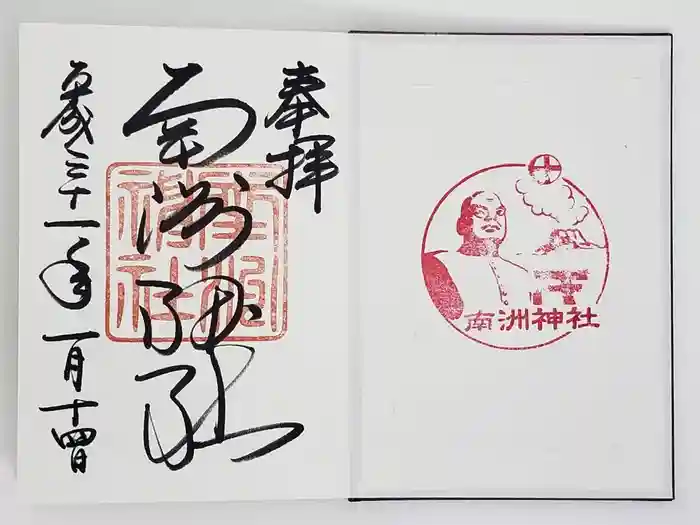 奉拝
南洲神社
平成三十一年一月十四日
南洲神社
南洲神社